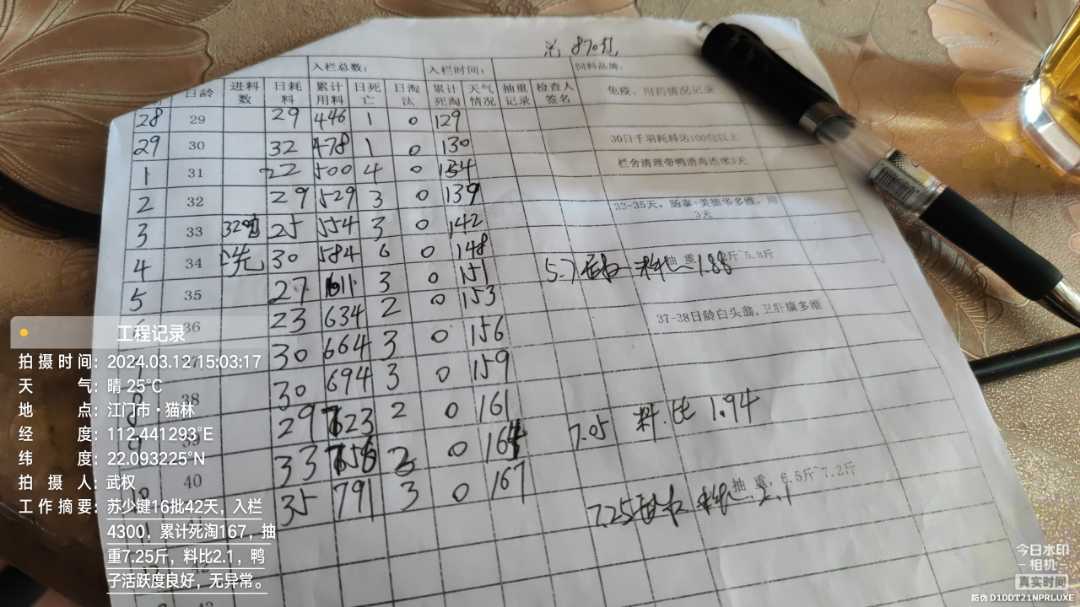 总 870包
入栏总数: 入栏时间: 饲料品牌:
日龄 进料数 日耗料 累计用料 日死亡 日淘汰 累计死淘 天气情况 抽重记录 检查人签名 免疫、用药情况记录
28 29 29 446 1 0 129
29 30 32 478 1 0 130 30日千羽耗料达100包以上
1 31 22 500 4 0 134 栏舍清理带鸭消毒连续3天
2 32 29 529 3 0 139
3 33 25 554 3 0 142
4 34 30 584 6 0 148
5 35 27 611 3 0 151 5.7 料比 1.88
36 23 634 2 0 153 37-38日龄白头翁,
30 664 3 0 156
38 30 694 3 0 159
29 723 2 0 161 7.05 料比 1.94
40 33 756 3 0 164
35 791 3 0 167 抽重: 6.5斤 7.2斤
7.25 2.1
工程记录
拍摄时间: 2024.03.12 15:03:17
天 气: 晴 25℃
地 点: 江门市·猫林
经 度: 112.441293°E
纬 度: 22.093225°N
拍 摄 人: 武权
工作摘要: 苏少键16批42天,入栏
4300,累计死淘167,抽
重7.25斤,料比2.1,鸭
子活跃度良好,无异常。
今日水印
相机
真实时间
防伪 D1DDT21NPRLUXE